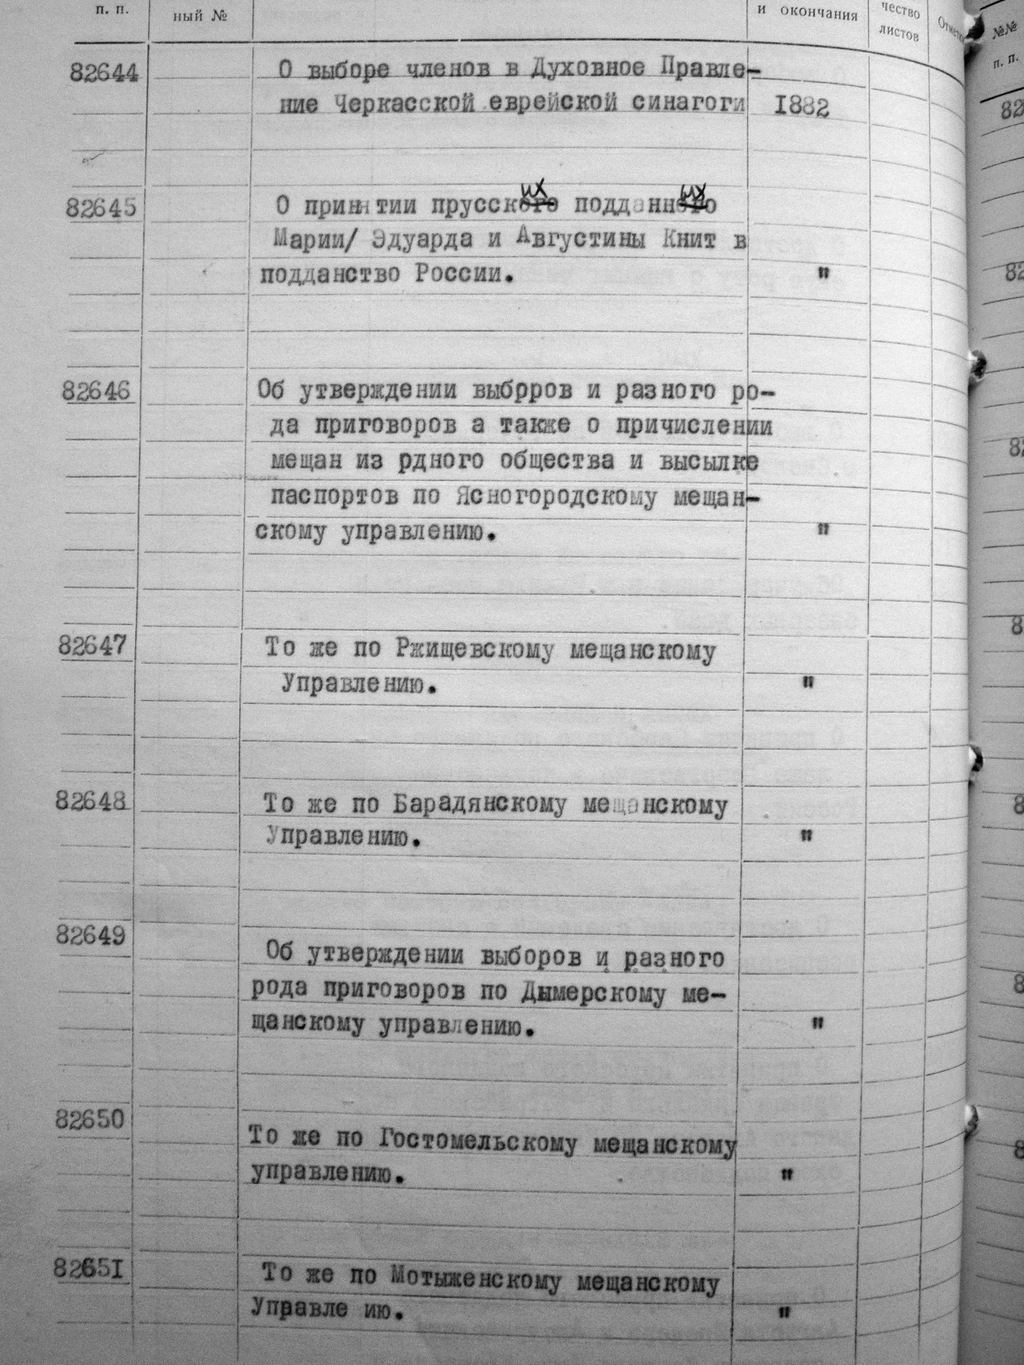 п. п. ный № и окончания чество листов
82644 О выборе членов в Духовное Правле-
ние Черкасской еврейской синагоги 1882
82645 О принятии прусских подданных
Марии/ Эдуарда и Августины Книт в
подданство России. "
82646 Об утверждении выбрров и разного ро-
да приговоров а также о причислении
мещан из рдного общества и высылке
паспортов по Ясногородскому мещан-
скому управлению. "
82647 То же по Ржищевскому мещанскому
Управлению. "
82648 То же по Барадянскому мещанскому
Управлению. "
82649
Об утверждении выборов и разного
рода приговоров по Дымерскому ме-
щанскому управлению. "
82650
То же по Гостомельскому мещанскому
управлению. "
82651 То же по Мотыженскому мещанскому
Управле ию. "
№№
п. п.